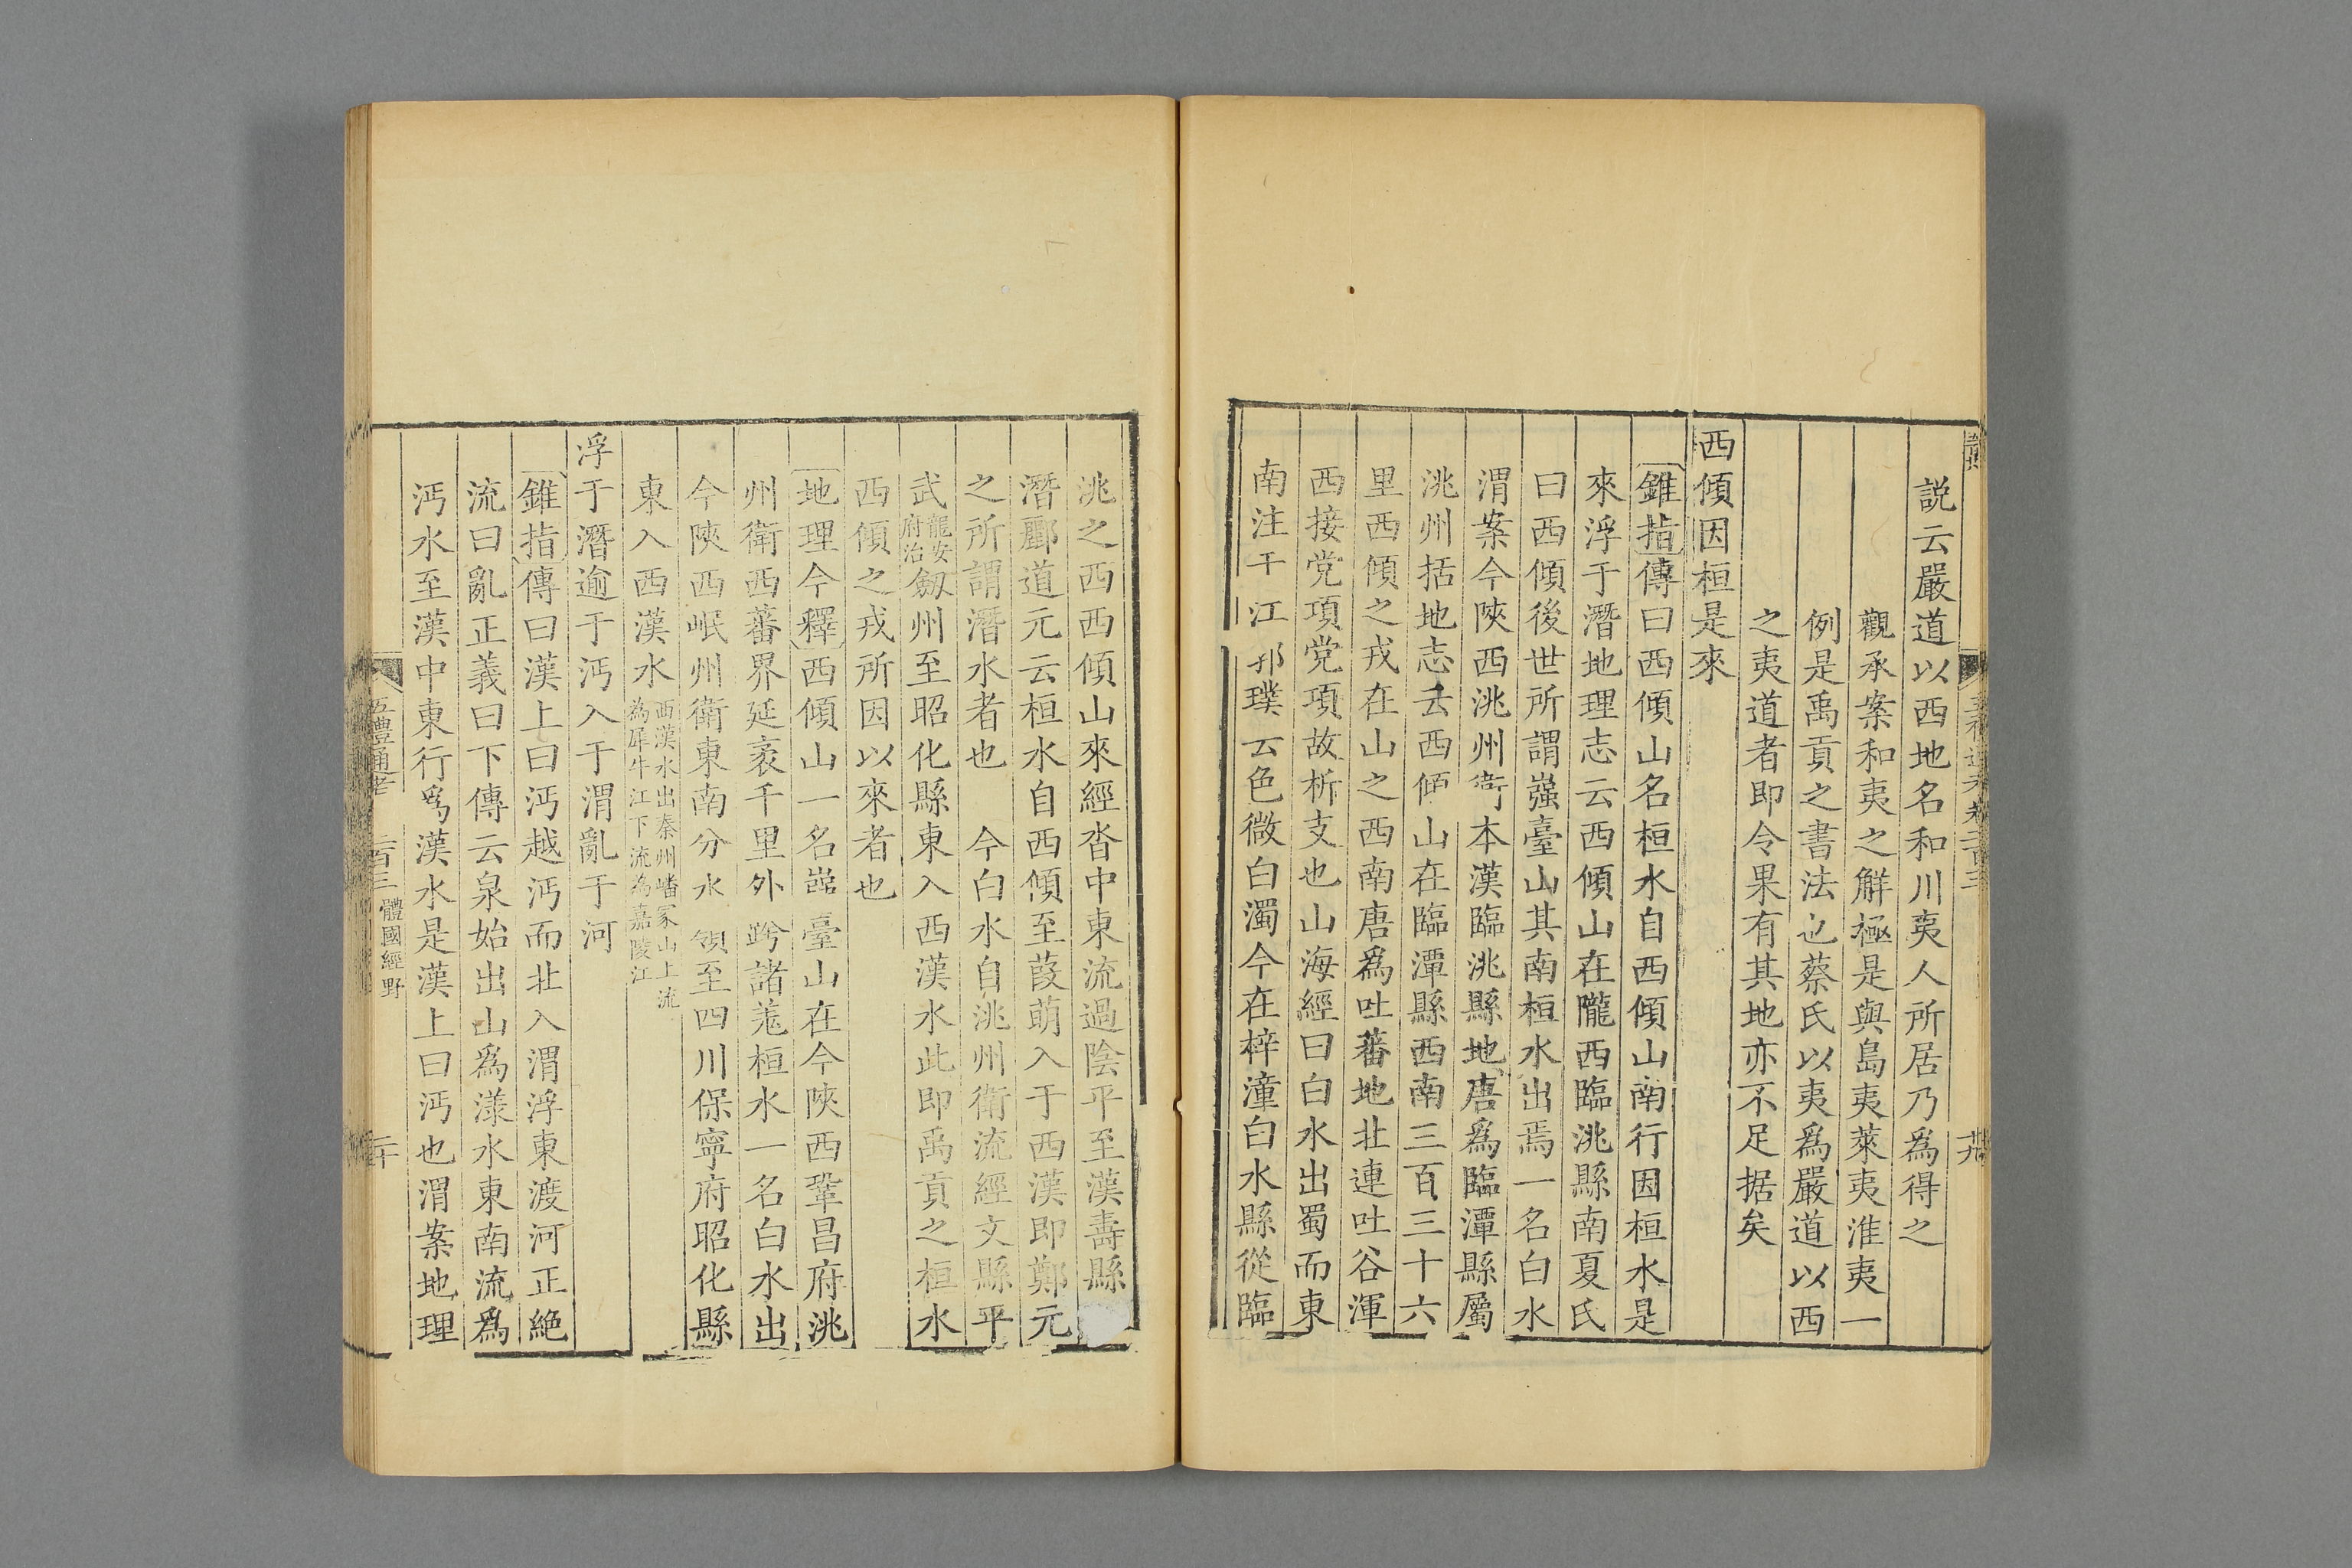 説云嚴道以西地名和川夷人所居乃爲得之
觀承案和夷之解極是與島夷萊夷淮夷一
例是禹貢之書法也蔡氏以夷爲嚴道以西
之夷道者即令果有其地亦不足据矣
西傾因桓是來
錐指傳曰西傾山名桓水自西傾山南行因桓水是
來浮于潛地理志云西傾山在隴西臨洮縣南夏氏
曰西傾後世所謂嵹臺山其南桓水出焉一名白水
渭案今陝西洮州衛本漢臨洮縣地唐爲臨潭縣屬
洮州括地志云西傾山在臨潭縣西南三百三十六
里西傾之戎在山之西南唐爲吐蕃地北連吐谷渾
西接党項党項故析支也山海經曰白水出蜀而東
南注于江郭璞云色微白濁今在梓潼白水縣從臨
洮之西西傾山來經沓中東流過陰平至漢壽縣
潛酈道元云桓水自西傾至葭萌入于西漢即鄭元
之所謂潛水者也 今白水自洮州衛流經文縣平
武龍安府治劔州至昭化縣東入西漢水此即禹貢之桓水
西傾之戎所因以來者也
地理今釋西傾山一名嵹臺山在今陝西鞏昌府洮
州衛西蕃界延袤千里外跨諸羗桓水一名白水出
今陝西岷州衛東南分水嶺至四川保寧府昭化縣
東入西漢水西漢水出秦州嶓冢山上流為犀牛江下流為嘉陵江
浮于潛逾于沔入于渭亂于河
錐指傳曰漢上曰沔越沔而北入渭浮東渡河正絶
流曰亂正義曰下傳云泉始出山爲漾水東南流爲
沔水至漢中東行爲漢水是漢上曰沔也渭案地理
五禮通考 二百三 體國經野 二十